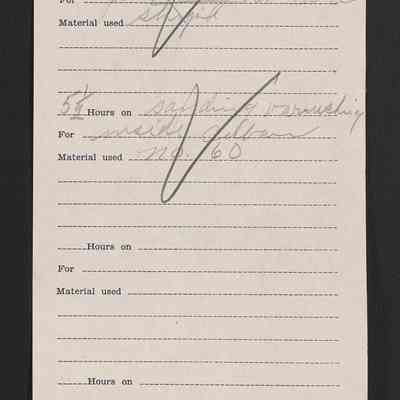 For
Material used
5½ Hours on sanding varnishing
For inside
Material used no. 60
Hours on
For
Material used
Hours on